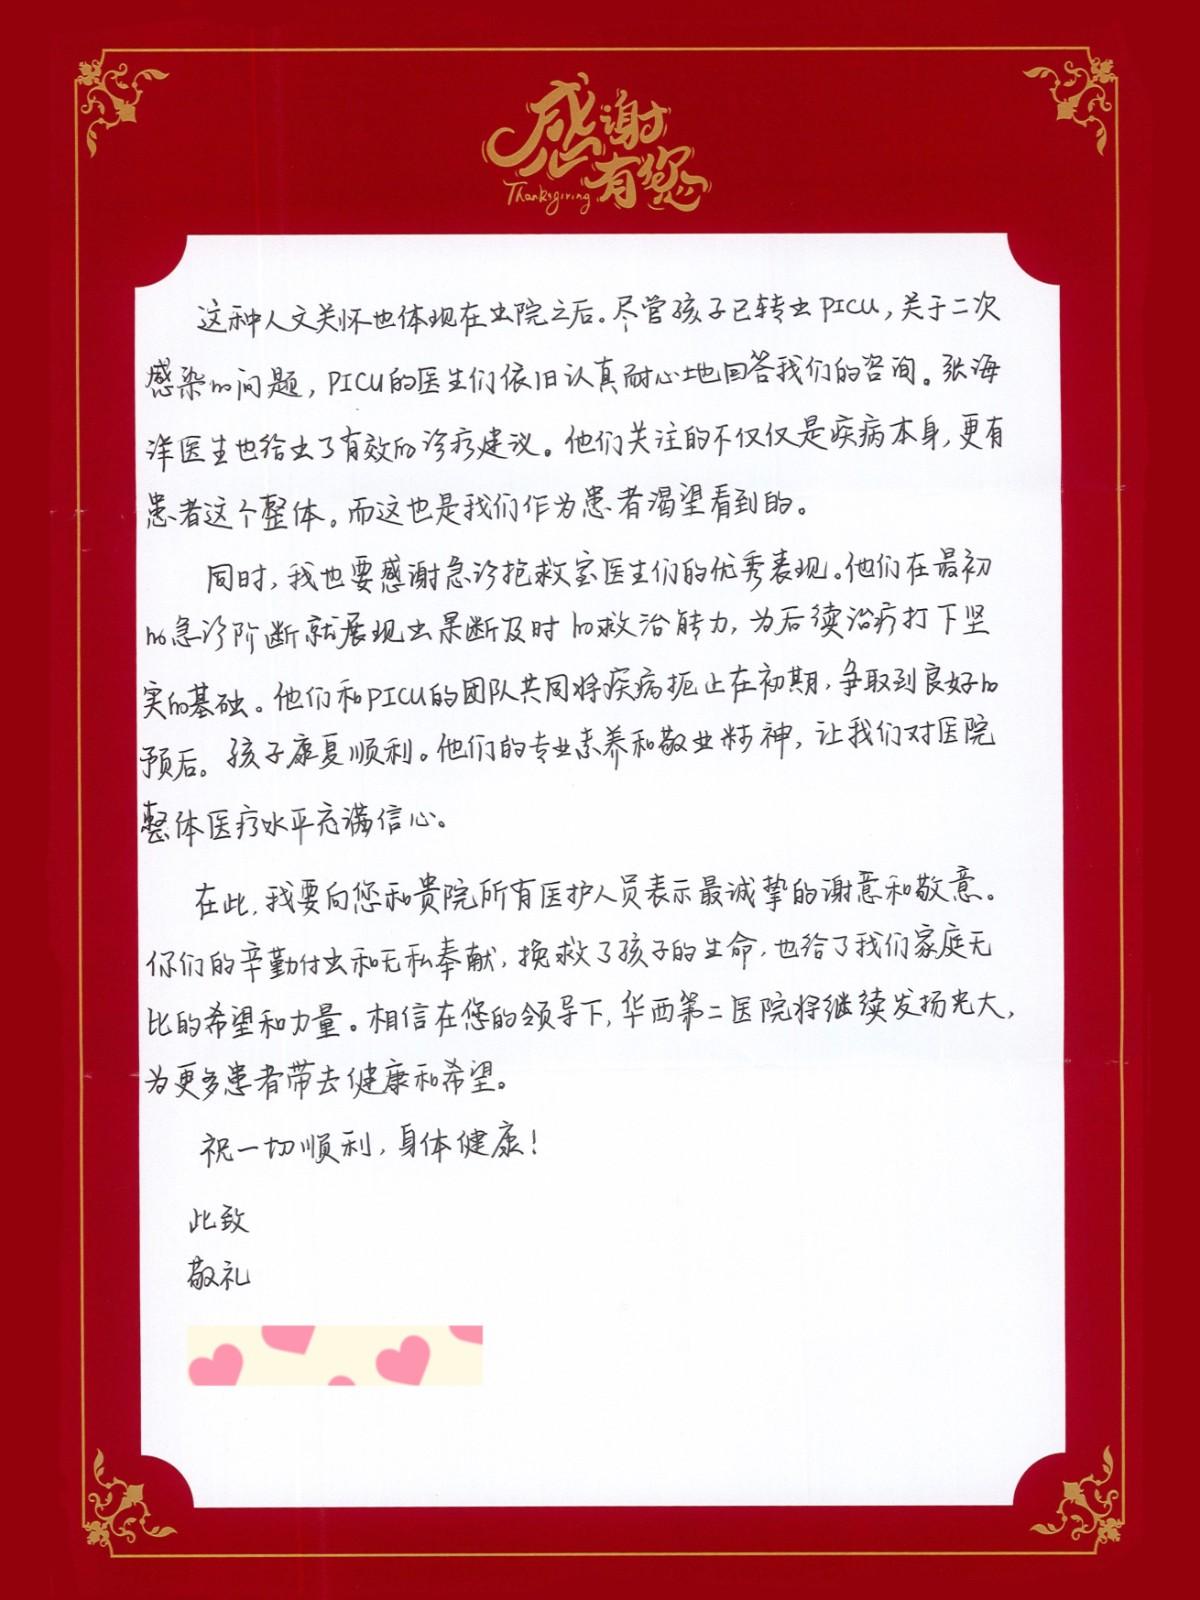 感谢有您
Thanksgiving
这种人文关怀也体现在出院之后。尽管孩子已转出PICU,关于二次
感染的问题,PICU的医生们依旧认真耐心地回答我们的咨询。张海
洋医生也给出了有效的诊疗建议。他们关注的不仅仅是疾病本身,更有
患者这个整体。而这也是我们作为患者渴望看到的。
同时,我也要感谢急诊抢救室医生们的优秀表现。他们在最初
的急诊阶断就展现出果断及时的救治能力,为后续治疗打下坚
实的基础。他们和PICU的团队共同将疾病扼止在初期,争取到良好的
预后。孩子康复顺利。他们的专业素养和敬业精神,让我们对医院
整体医疗水平充满信心。
在此,我要向您和贵院所有医护人员表示最诚挚的谢意和敬意。
你们的辛勤付出和无私奉献,挽救了孩子的生命,也给了我们家庭无
比的希望和力量。相信在您的领导下,华西第二医院将继续发扬光大,
为更多患者带去健康和希望。
祝一切顺利,身体健康!
此致
敬礼